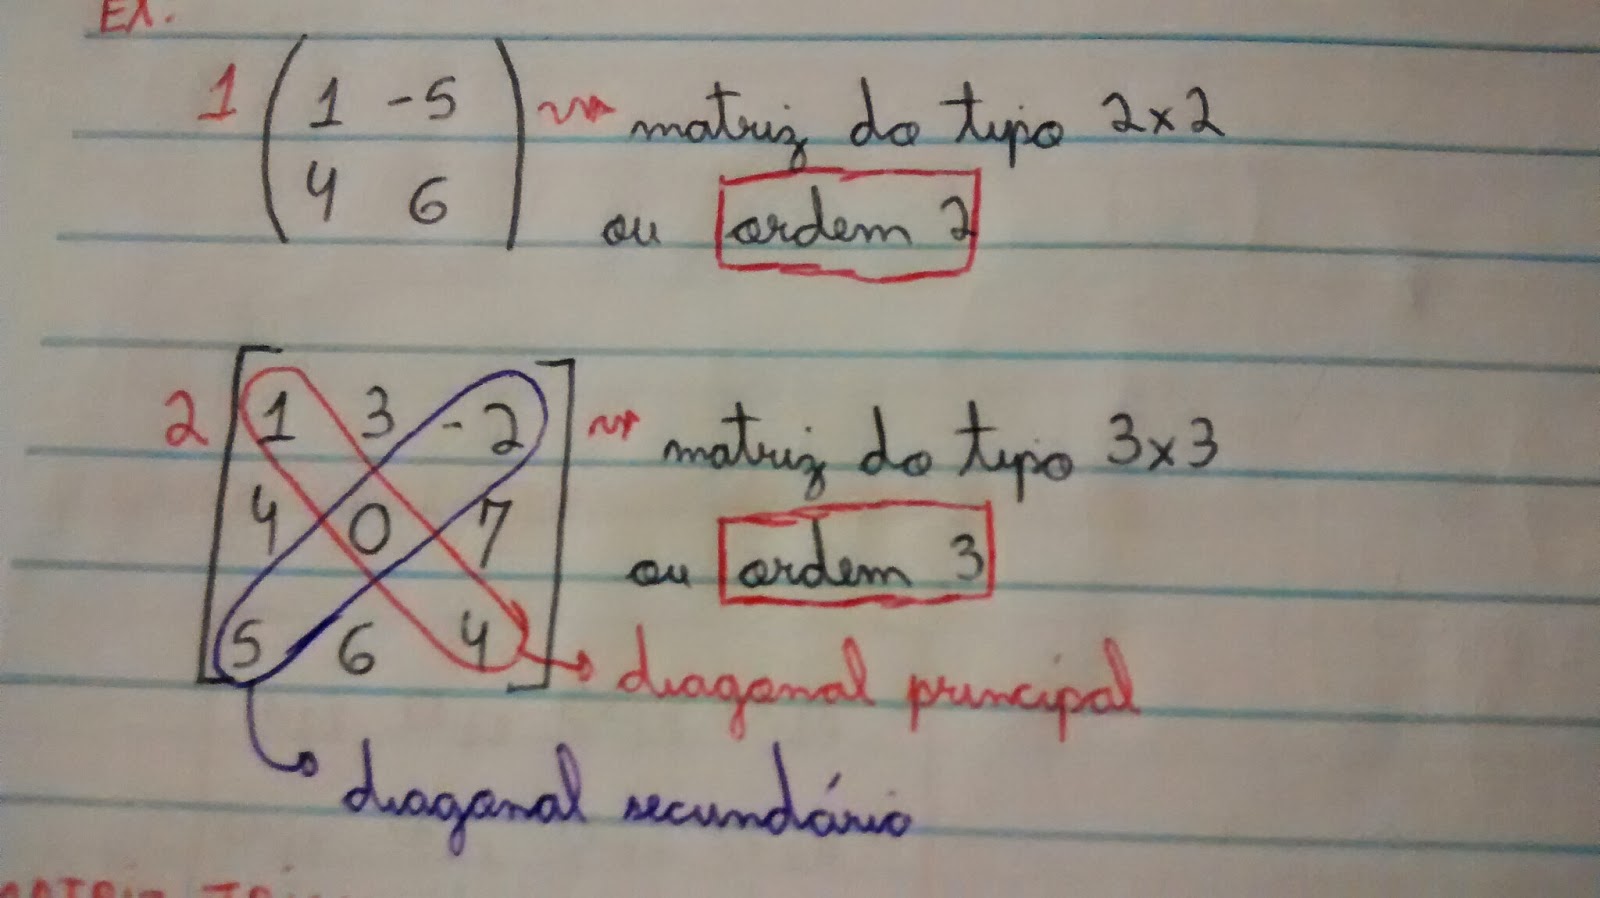 Ex.
1 ( 1 -5 ) matriz do tipo 2x2
4 6
ou ordem 2
2 [ 1 3 -2 ] matriz do tipo 3x3
4 0 7
ou ordem 3
5 6 4
diagonal principal
diagonal secundário